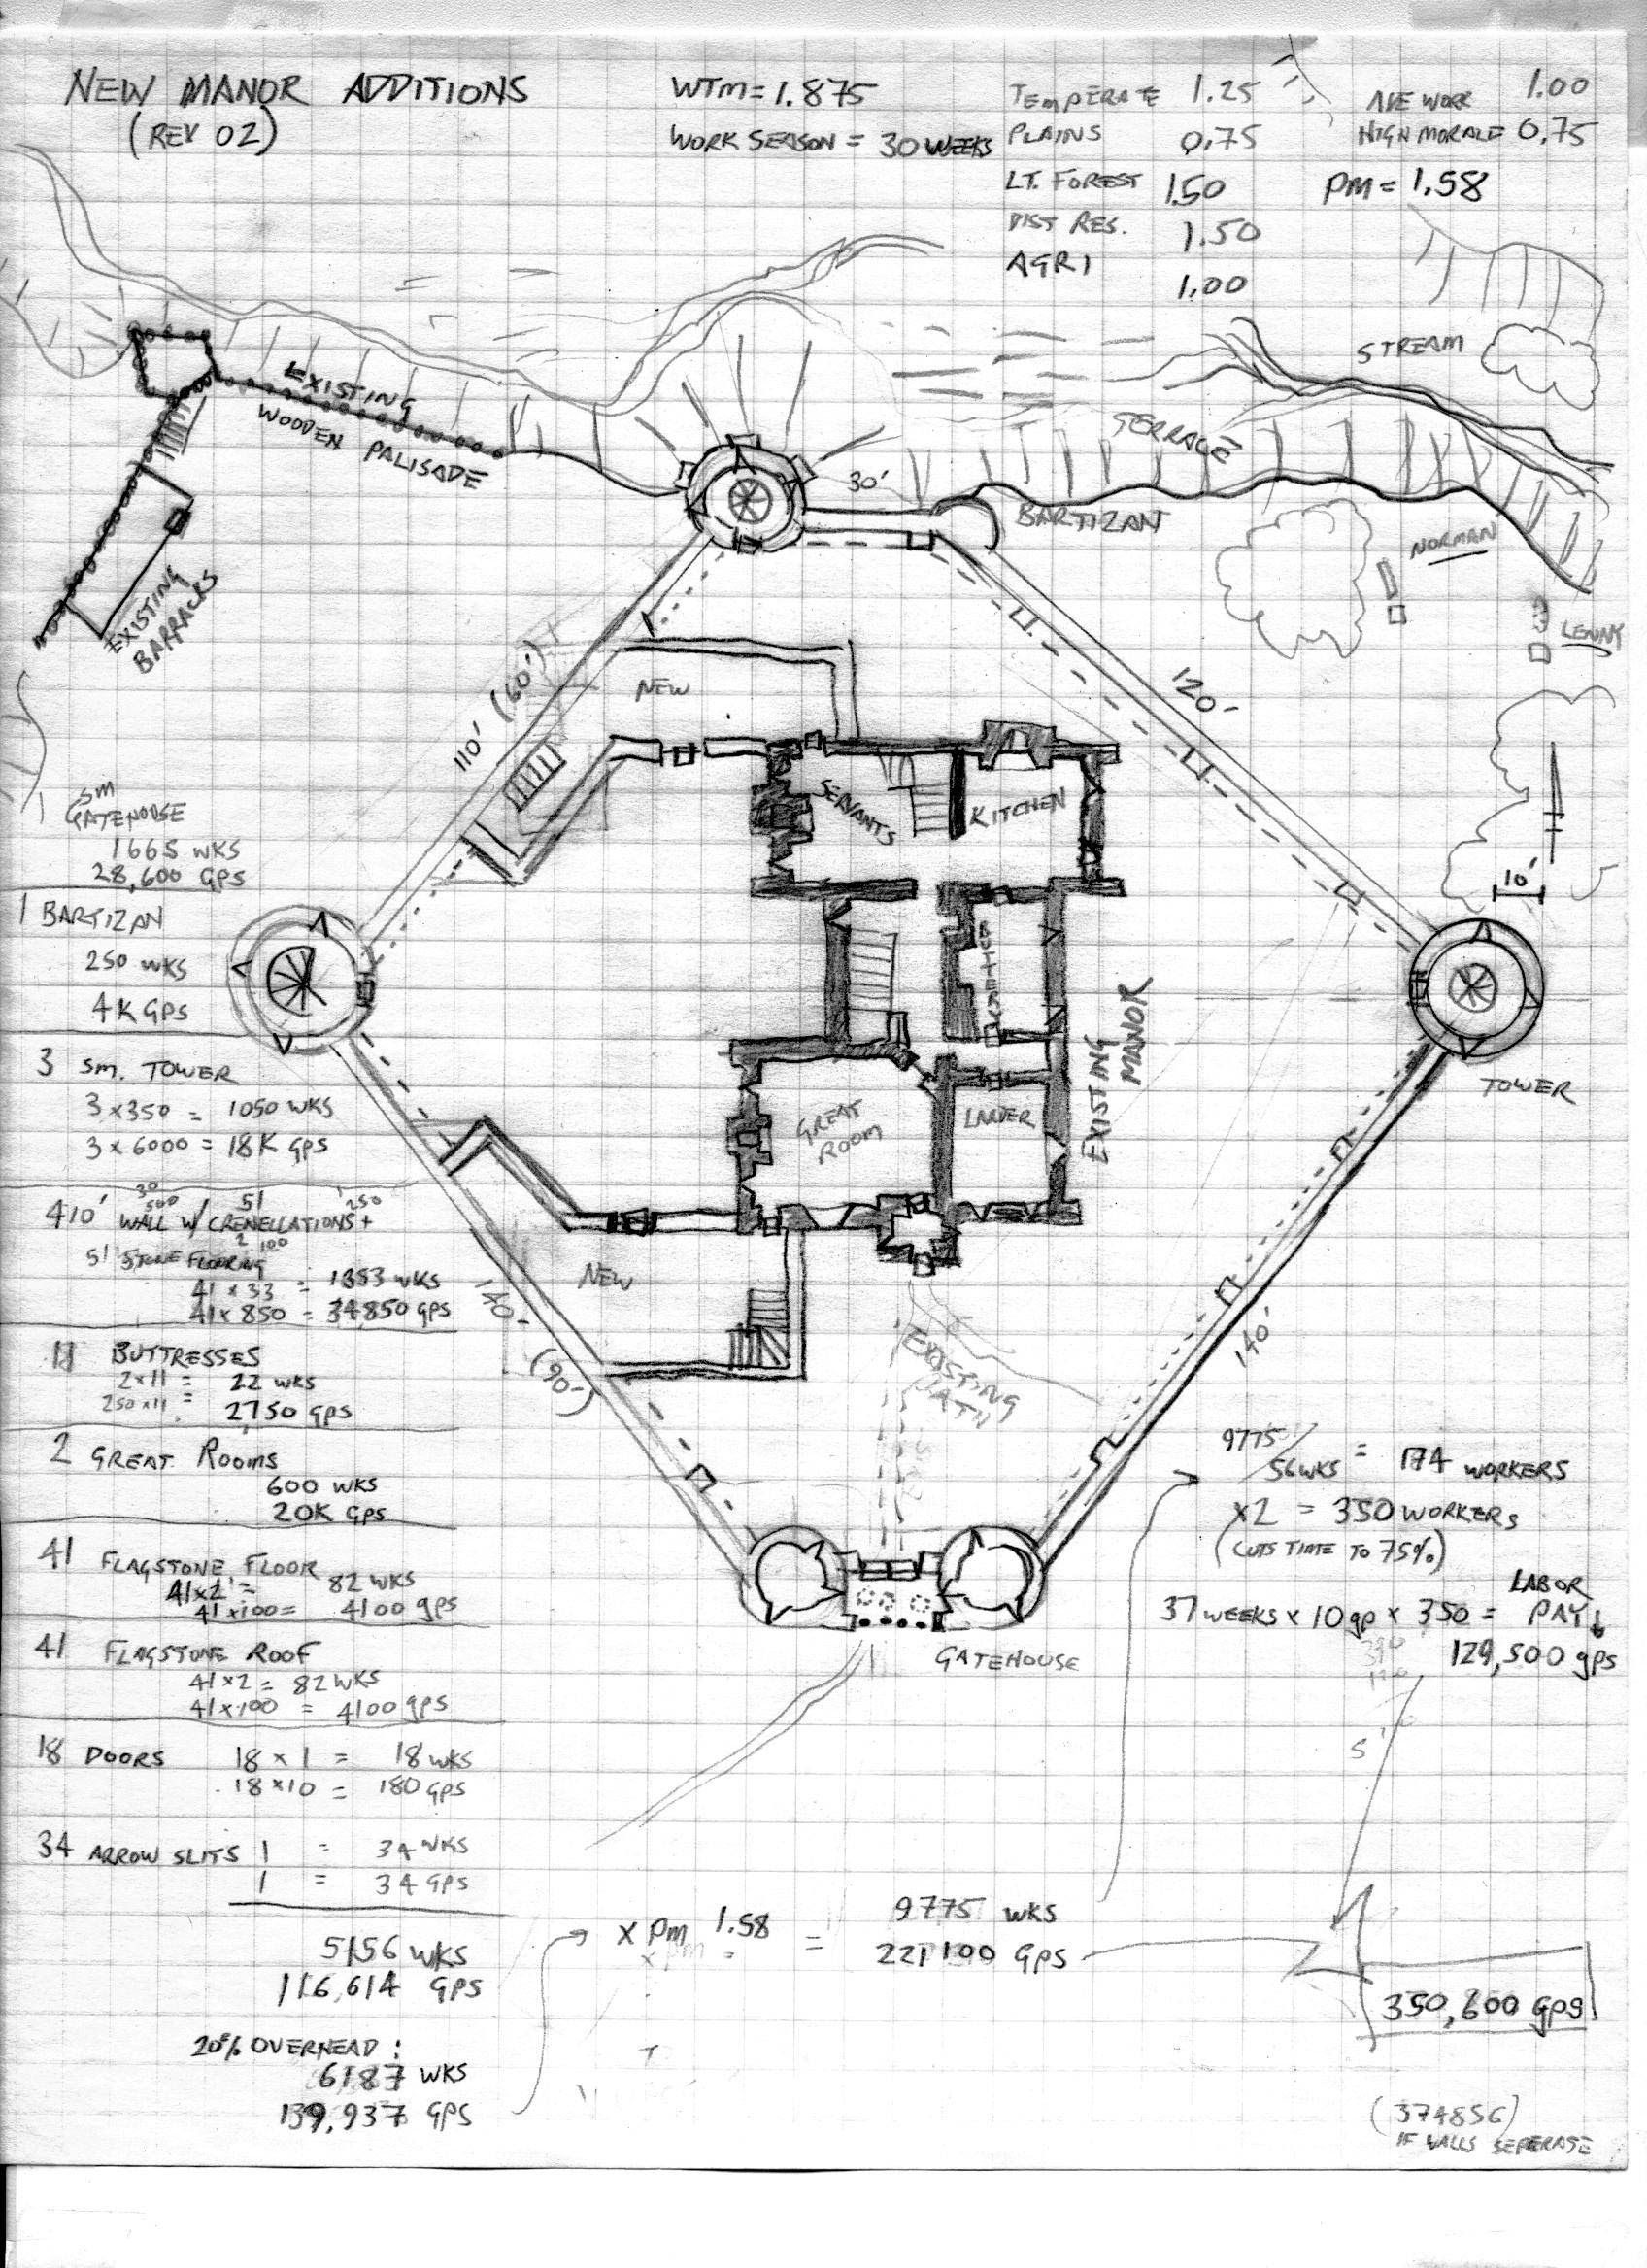 NEW MANOR ADDITIONS
(REV 02)
WTM = 1.875
WORK SEASON = 30 WEEKS
TEMPERATE 1.25
PLAINS 0.75
LT. FOREST 1.50
DIST RES. 1.50
AGRI 1.00
AVE WORK 1.00
HIGH MORALE 0.75
PM = 1.58
STREAM
TERRACE
EXISTING
WOODEN PALISADE
30'
BARTIZAN
NORMAN
LENNY
EXISTING
BARRACKS
110' (60')
NEW
120'
SERVANTS
KITCHEN
10'
BUTTERY
EXISTING
MANOR
TOWER
GREAT
ROOM
LARDER
NEW
140'
(90')
EXISTING
PATH
140'
GATEHOUSE
1 SM
GATEHOUSE
1665 WKS
28,600 GPS
1 BARTIZAN
250 WKS
4K GPS
3 SM. TOWER
3 x 350 = 1050 WKS
3 x 6000 = 18K GPS
30 500 51 250
410' WALL W/ CRENELLATIONS +
2 100
5' STONE FLOORING
41 x 33 = 1353 WKS
41 x 850 = 34850 GPS
11 BUTTRESSES
2 x 11 = 22 WKS
250 x 11 = 2750 GPS
2 GREAT ROOMS
600 WKS
20K GPS
41 FLAGSTONE FLOOR
41 x 2 = 82 WKS
41 x 100 = 4100 gps
41 FLAGSTONE ROOF
41 x 2 = 82 WKS
41 x 100 = 4100 gps
18 DOORS 18 x 1 = 18 WKS
18 x 10 = 180 GPS
34 ARROW SLITS 1 = 34 WKS
1 = 34 GPS
5156 WKS
116,614 GPS
20% OVERHEAD :
6187 WKS
139,937 GPS
x PM 1.58 = 9775 WKS
221100 GPS
9775 / 56 WKS = 174 WORKERS
x2 = 350 WORKERS
(CUTS TIME TO 75%)
LABOR
37 WEEKS x 10 gp x 350 = PAY
129,500 gps
350,600 GPS
(374856)
IF WALLS SEPERATE